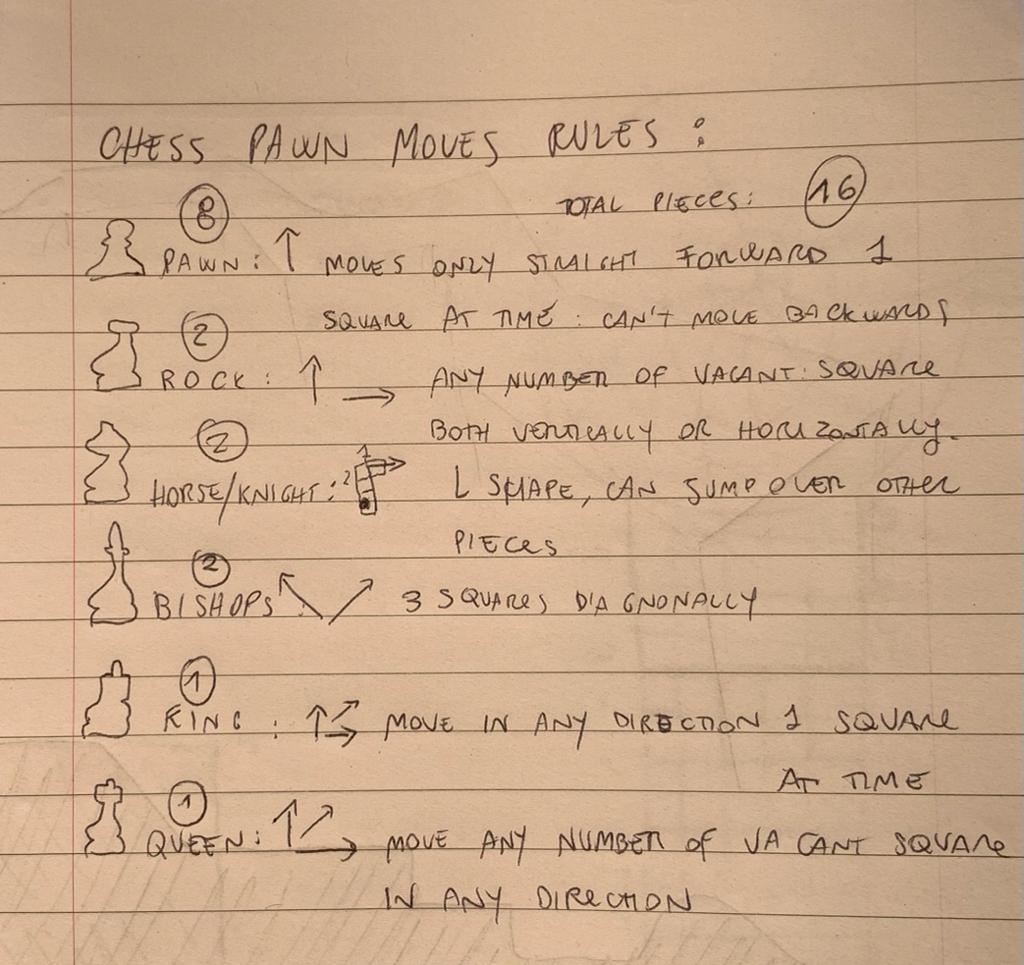 CHESS PAWN MOVES RULES :
TOTAL PIECES: 16
8
PAWN: ↑ MOVES ONLY STRAIGHT FORWARD 1
SQUARE AT TIME : CAN'T MOVE BACKWARDS
2
ROCK: ↑ → ANY NUMBER OF VACANT SQUARE
BOTH VERTICALLY OR HORIZONTALLY.
2
HORSE/KNIGHT: 2 1 L SHAPE, CAN JUMP OVER OTHER
PIECES
2
BISHOPS: ↖ ↗ 3 SQUARES DIAGNONALLY
1
KING : ↑ ↗ → MOVE IN ANY DIRECTION 1 SQUARE
AT TIME
1
QUEEN: ↑ ↗ → MOVE ANY NUMBER OF VACANT SQUARE
IN ANY DIRECTION